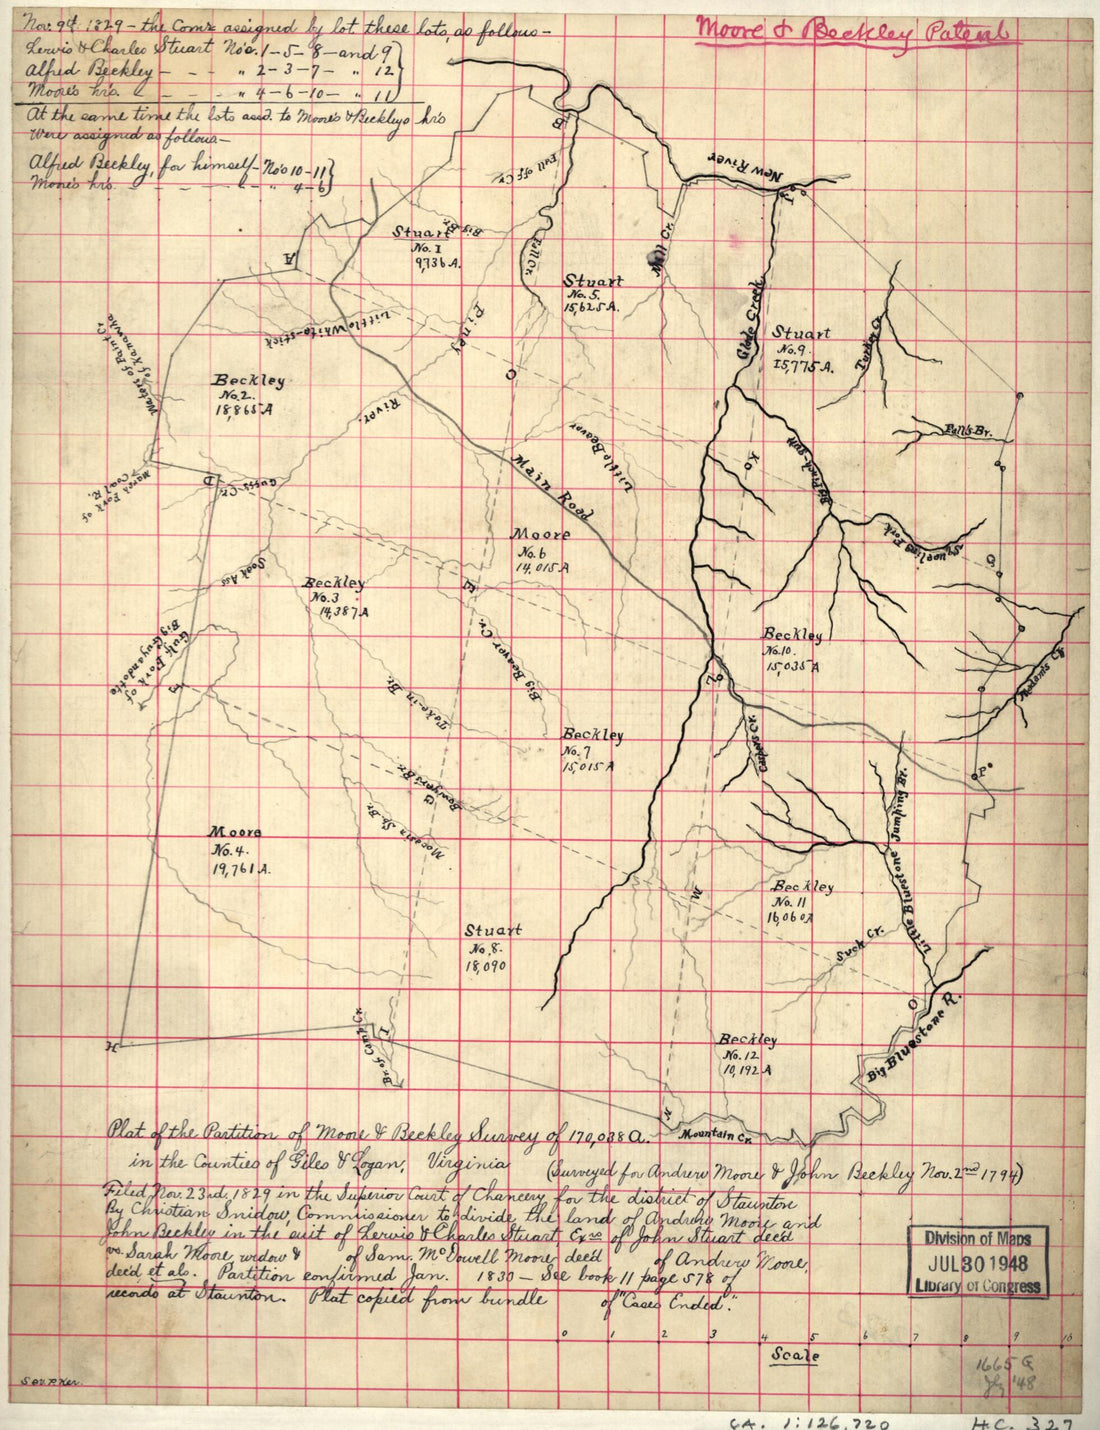 Moore & Beckley Patent
Nov. 9th 1829 – the Comrs assigned by lot these lots, as follows –
Lewis & Charles Stuart Nos. 1 – 5 – 8 – and 9
Alfred Beckley – - - " 2 – 3 – 7 – " 12
Moore's hrs. - - - " 4 – 6 – 10 – " 11
At the same time the lots assd. to Moore's & Beckleys hrs
were assigned as follows –
Alfred Beckley, for himself – Nos 10 – 11
Moore's hrs. - - - - - " 4 – 6
New River
B
Fall off Cr.
Big Br.
Stuart
No. 1
9,736 A.
Fall Cr.
Mill Cr.
A
Stuart
No. 5.
15,625 A.
Glade Creek
Stuart
No. 9.
15,775 A.
Turkey Cr.
Little White-stick
Piney
River.
Waters of Paint Cr.
of Kanawha
Beckley
No. 2.
18,865 A
C
Main Road
Little Beaver
Ko
Big Pinch-gut
Falls Br.
Marsh Fork of
Coal R.
D
Moore
No. 6
14,015 A
Fork
Soak Ass
Beckley
No. 3
14,387 A
E
Beckley
No. 10.
15,035 A
Q
Gulf Fork of
Big Guyandotte
F
Big Beaver Cr.
Take-in Br.
L
Madams Cr.
Beckley
No. 7
15,015 A
P
Bowyers Br.
G
Little Bluestone Jumping Br.
Moore
No. 4.
19,761 A.
Beckley
No. 11
16,060 A
M
Suck Cr.
Stuart
No. 8.
18,090
O
Big Bluestone R.
H
I
Br. of Camp Cr.
Beckley
No. 12
10,192 A
N
Mountain Cr.
Plat of the Partition of Moore & Beckley Survey of 170,038 A.
in the Counties of Giles & Logan, Virginia (Surveyed for Andrew Moore & John Beckley Nov. 2nd 1794)
Filed Nov. 23rd, 1829 in the Superior Court of Chancery for the district of Staunton
By Christian Snidow, Commissioner to divide the land of Andrew Moore and
John Beckley in the suit of Lewis & Charles Stuart Exrs of John Stuart dec'd
vs. Sarah Moore, widow & of Sam. McDowell Moore dec'd of Andrew Moore,
dec'd et als. Partition confirmed Jan. 1830 – See book 11 page 578 of
records at Staunton. Plat copied from bundle of "Cases Ended".
Division of Maps
JUL 30 1948
Library of Congress
0 1 2 3 4 5 6 7 8 9 10
Scale
1665 G
Jy '48
ca. 1:126,720 H.C. 327